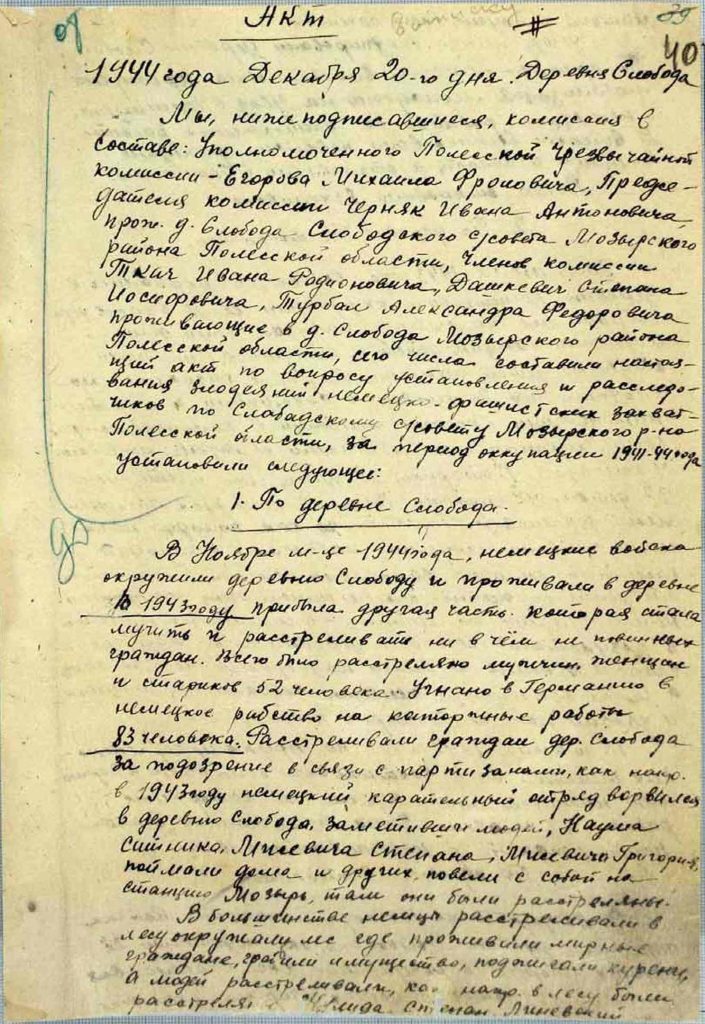 Акт
39
40
1944 года Декабря 20-го дня. Деревня Слобода
Мы, нижеподписавшиеся, комиссия в
составе: Уполномоченного Полесской Чрезвычайной
комиссии - Егорова Михаила Фроловича, Предсе-
дателя комиссии Черняк Ивана Антоновича,
прож. д. Слобода Слободского с/совета Мозырского
района Полесской области, членов комиссии
Ткач Ивана Родионовича, Дашкевич Степана
Иосифовича, Турбал Александра Федоровича
проживающие в д. Слобода Мозырского района
Полесской области, сего числа составили настоя-
щий акт по вопросу установления и расследо-
вания злодеяний немецко-фашистских захват-
чиков по Слабадскому с/совету Мозырского р-на
Полесской области, за период оккупации 1941-44 года
установили следующее:
1. По деревне Слобода.
В Ноябре м-це 1944 года, немецкие войска
окружили деревню Слободу и проживали в деревне
В 1943 году прибыла другая часть которая стала
мучить и расстреливать ни в чём не повинных
граждан. Всего было расстреляно мужчин, женщин
и стариков 52 человека. Угнано в Германию в
немецкое рабство на каторжные работы
83 человека. Расстреливали граждан дер. Слобода
за подозрение в связи с партизанами, как напр.
в 1943 году немецкий карательный отряд ворвился
в деревню Слобода, заметивши людей, Наума
Ситника, Мисевича Степана, Мисевича Григория,
поймали дома и других, повели с собой на
станцию Мозырь, там они были расстреляны.
В большинстве немцы расстреливали в
лесу окружали лес где проживили мирные
граждане, грабили имущество, поджигали курени,
а людей расстреливали, как напр. в лесу были
расстреля Степан Линевский